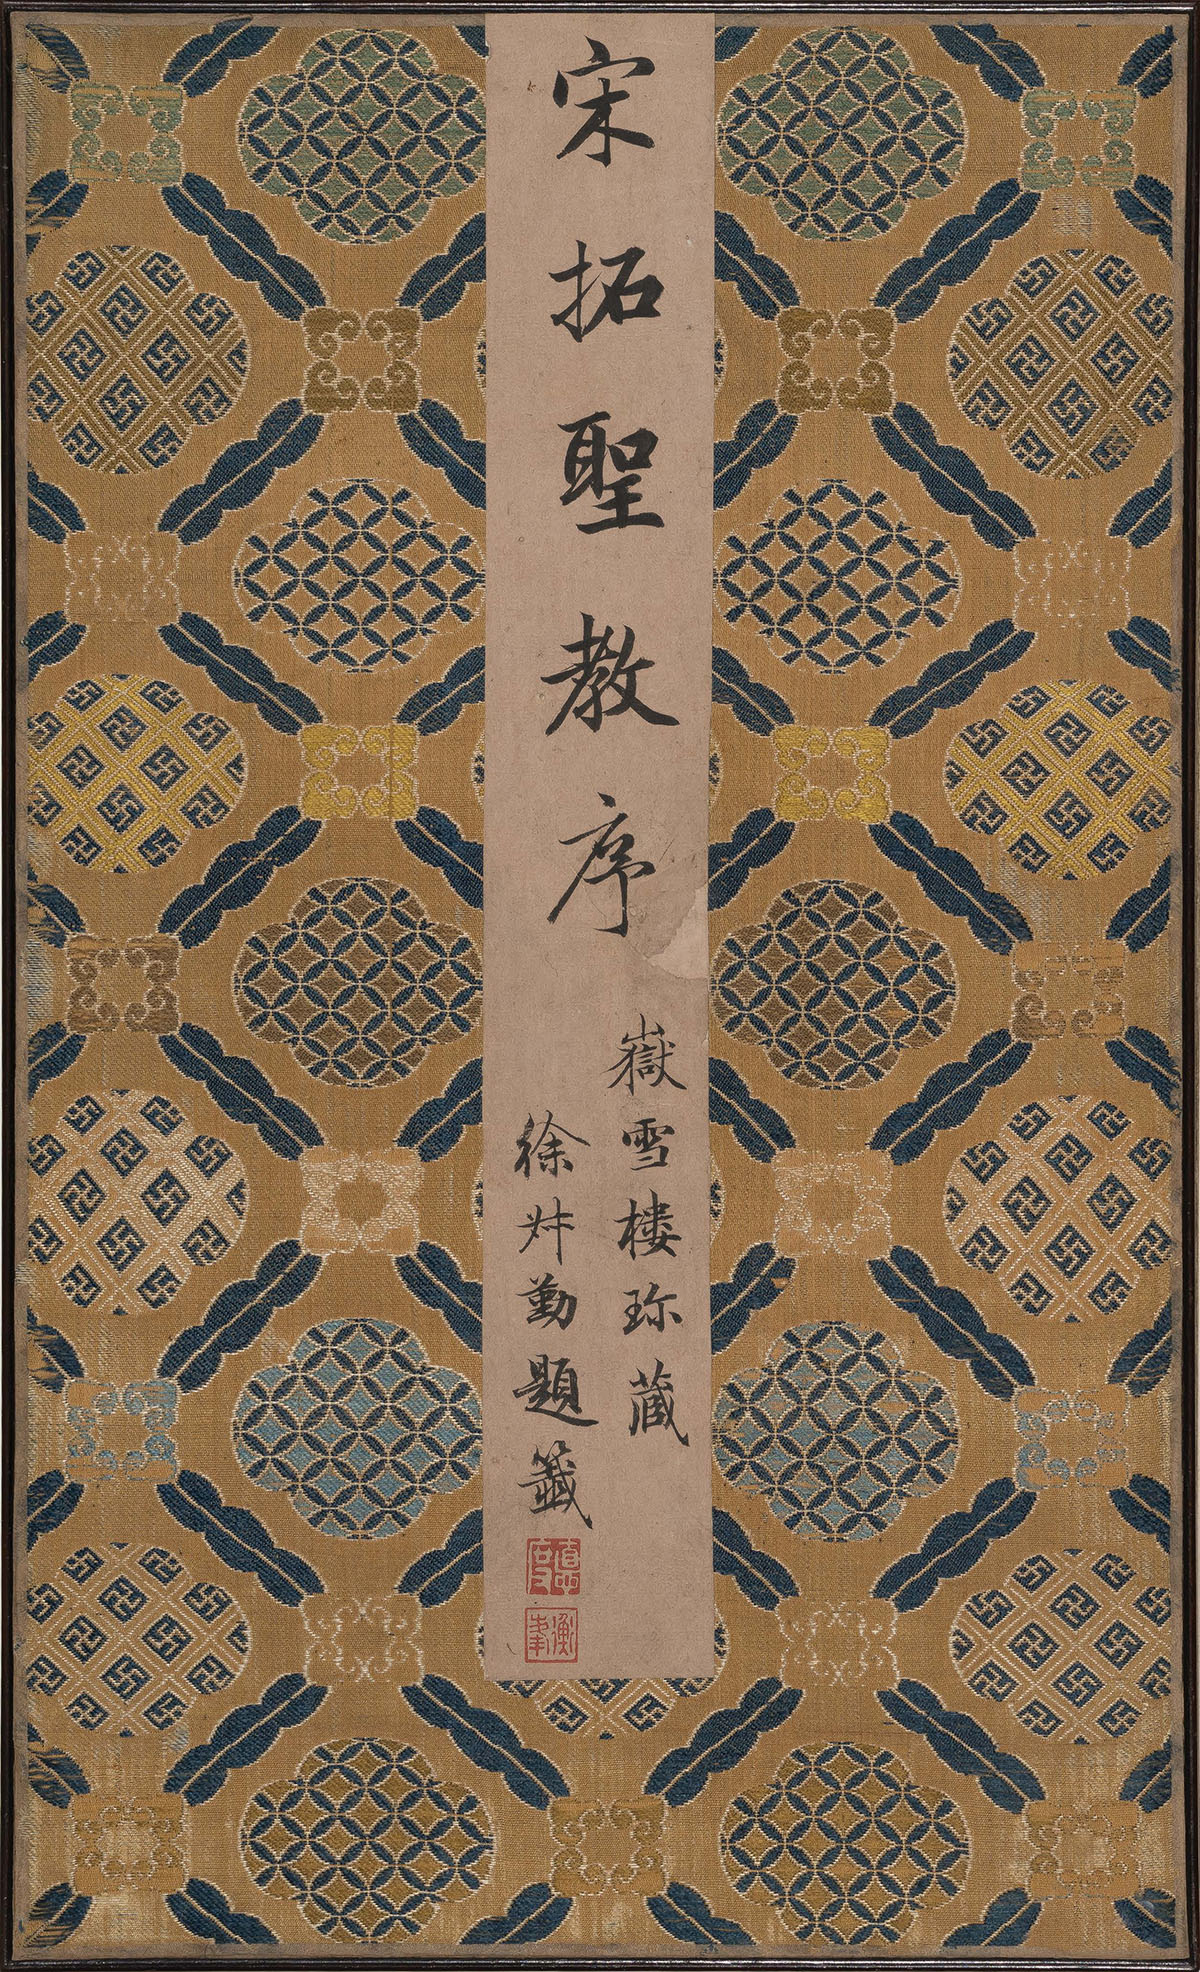 宋拓聖教序
嶽雪樓珎藏
徐㭕勤題籖